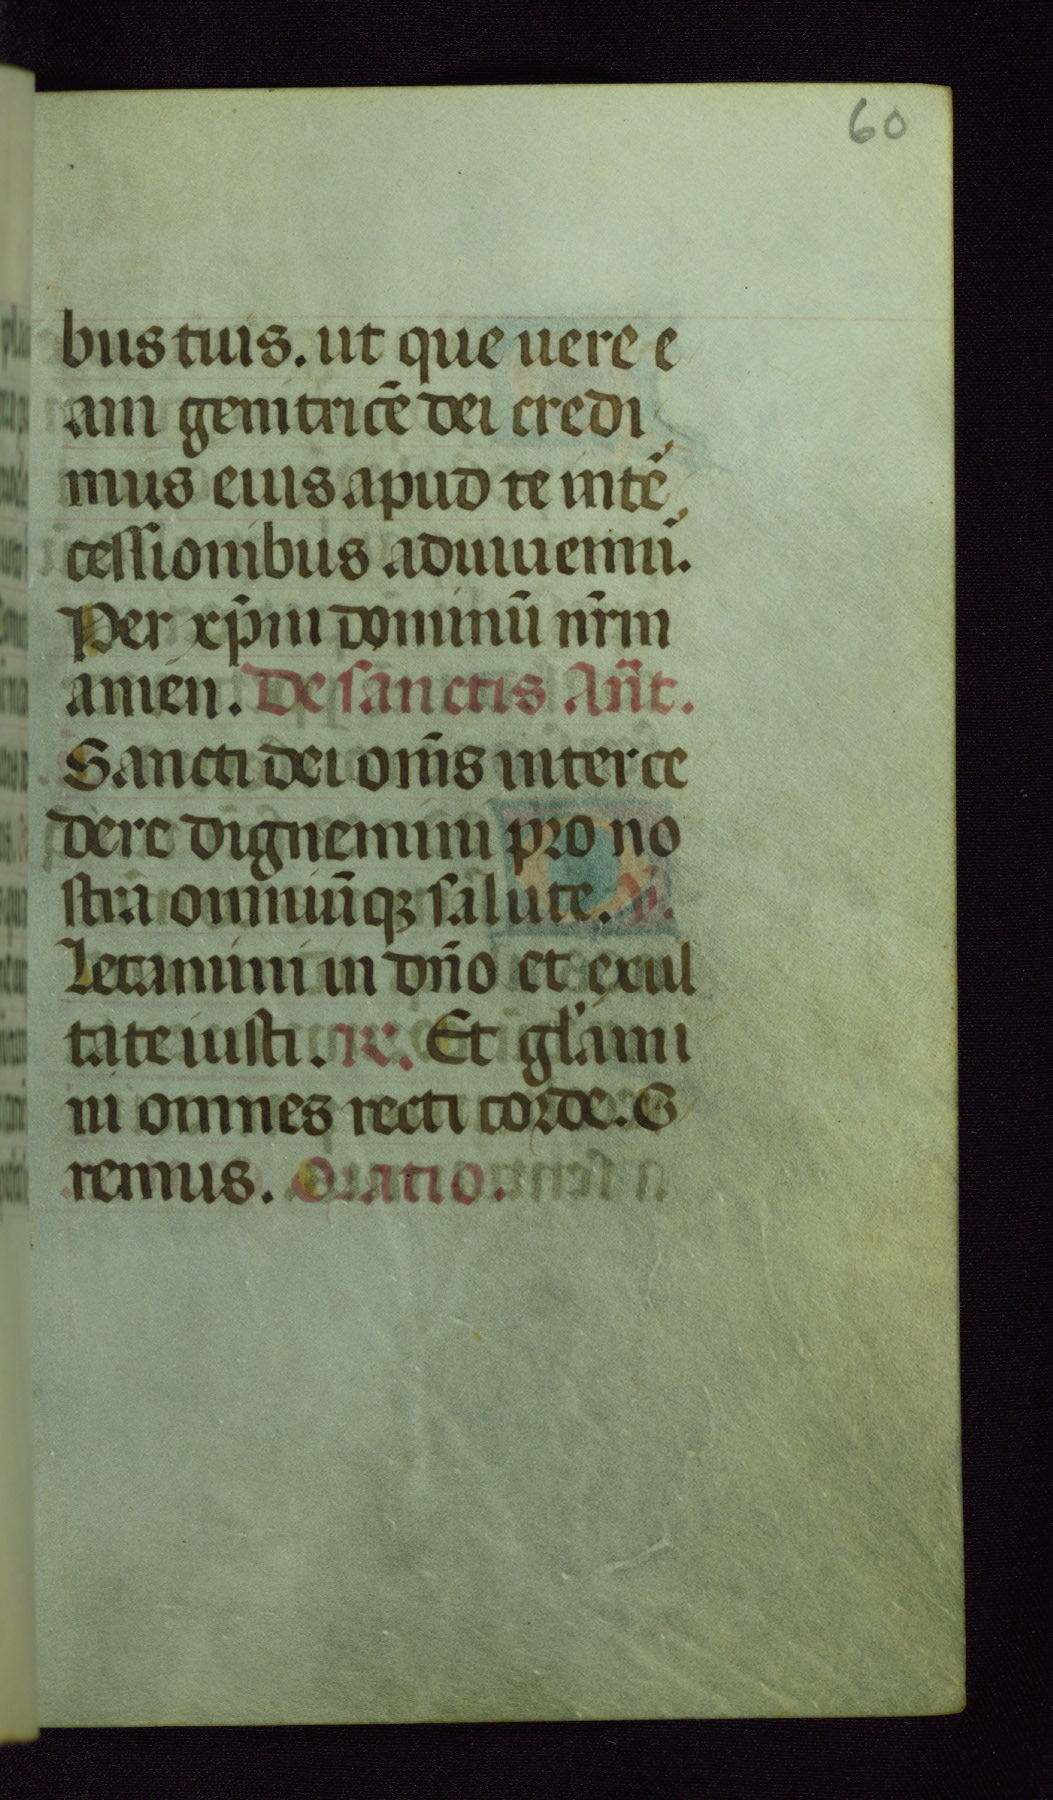 60
bus tuis. ut que uere e
am genitricē dei credi
mus eius apud te intē
cessionibus adiuuemū.
Per xp̄m dominū nr̄m
amen. De sanctis Añt.
Sancti dei om̄s interce
dere dignemini pro no
stra omniūqꝫ salute. ℣.
Letamini in dn̄o et exul
tate iusti. ℟. Et gl'ami
ni omnes recti corde. O
remus. Oratio.